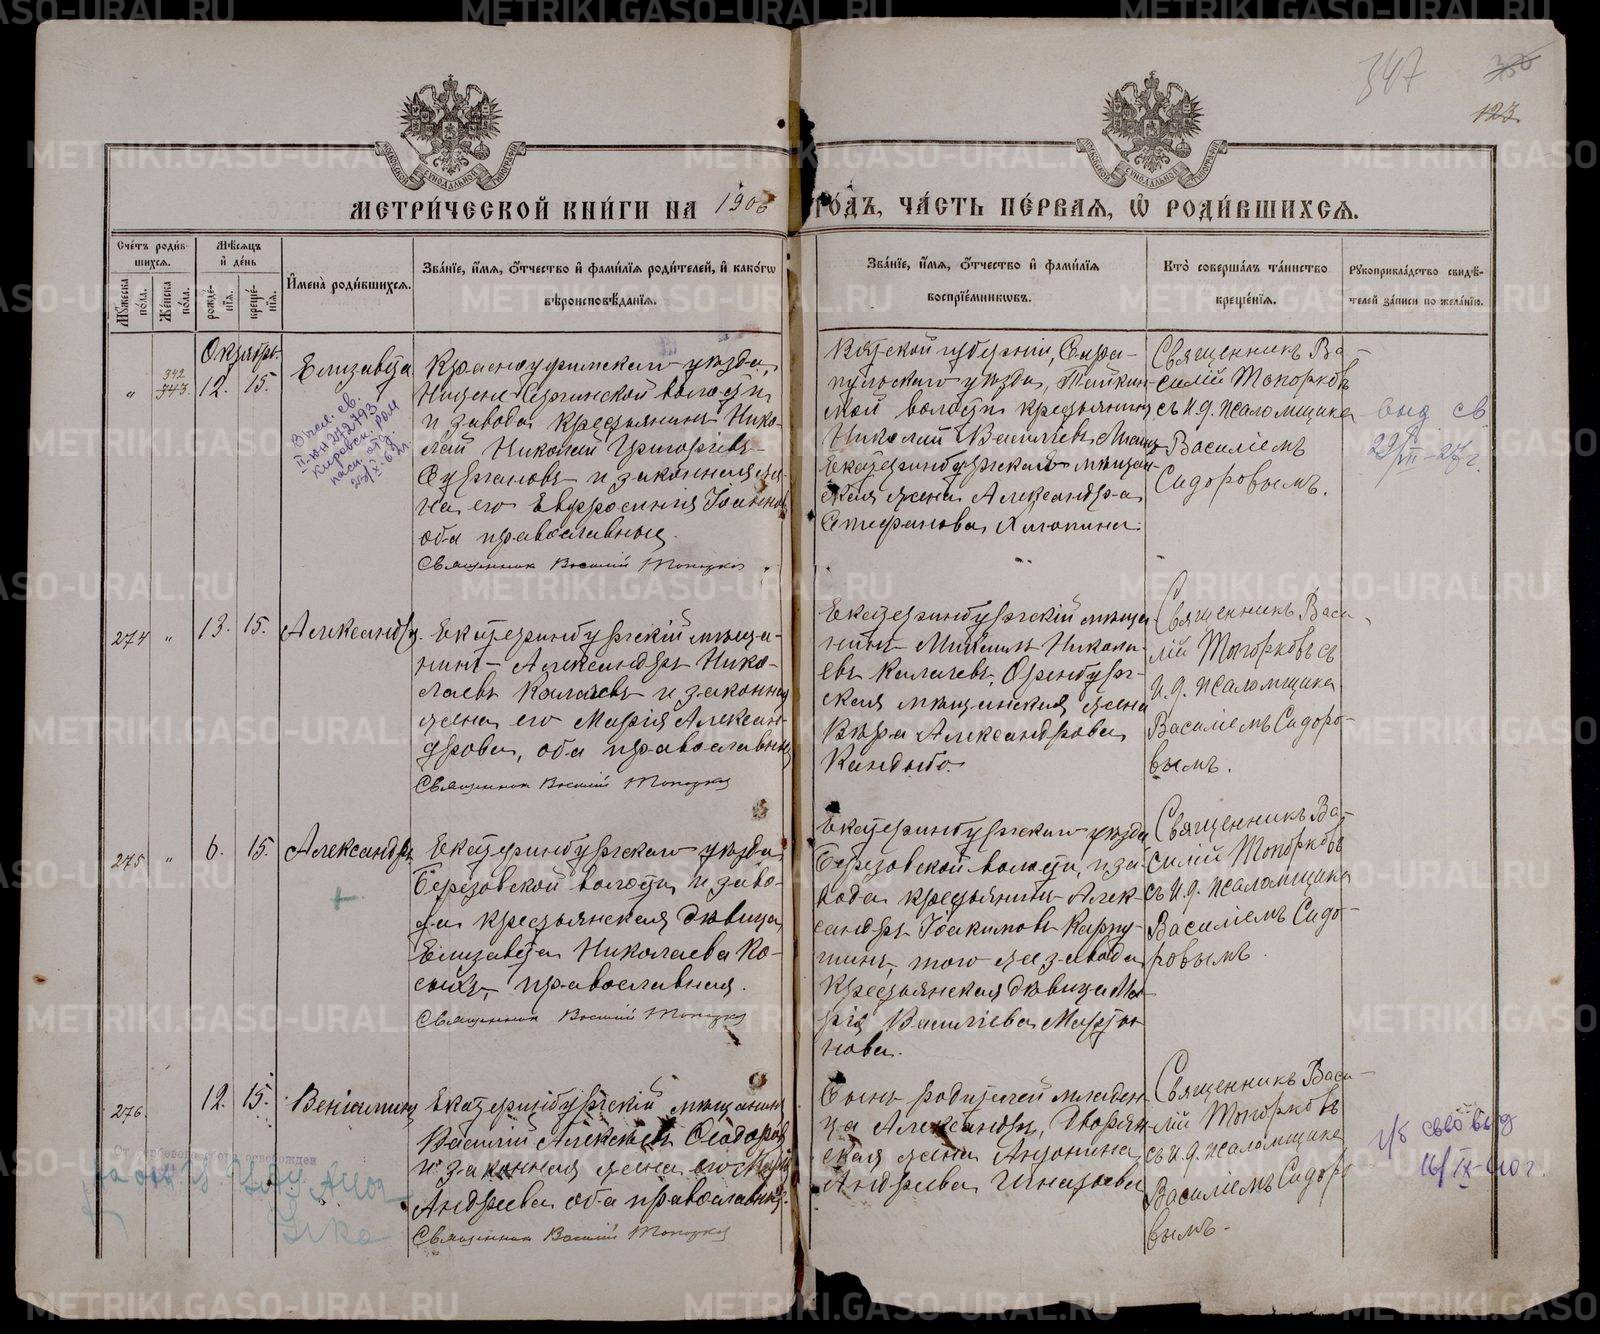 METRIKI.GASO-URAL.RU
347
123.
МЕТРИ́ЧЕСКОЙ КНИ́ГИ НА 1906 ГО́ДЪ, ЧА́СТЬ ПЕ́РВАЯ, Ѡ҆ РОДИ́ВШИХСЯ.
Сче́тъ роди́вшихся.
Мѣ́сяцъ и҆ де́нь
И҆мена̀ роди́вшихся.
Зва́нїе, и҆́мя, ѻ҆́тчество и҆ фами́лїя роди́телей, и҆ како́гѡ вѣроисповѣ́данїя.
Зва́нїе, и҆́мя, ѻ҆́тчество и҆ фами́лїя воспрїе́мникѡвъ.
Кто̀ соверша́лъ та́инство креще́нїя.
Рꙋкоприкла́дство свидѣ́телей за́писи по жела́нїю.
Мꙋ́жеска по́ла.
Же́нска по́ла.
рожде́нїя.
креще́нїя.
Октябрь.
" 342 343. 12. 15. Елизавета
Красноуфимскаго уѣзда,
Нижне-Сергинской волости
и завода крестьянинъ Нико-
лай Николай Григорьевъ
и законная же-
на его Евфросинія Іоаннова,
оба православные.
Священникъ Василій Топорковъ
Вятской губерніи, Сара-
пульскаго уѣзда,
волости крестьянинъ
Николай Васильевъ
Екатеринбургская мѣщан-
ская жена Александра
Стефанова Хлопина.
Священникъ Ва-
силій Топорковъ
съ И.д. псаломщика
Василіемъ
Сидоровымъ.
274 " 13. 15. Александръ.
Екатеринбургскій мѣща-
нинъ Александръ Нико-
лаевъ Калачевъ и законная
жена его Марія Алексан-
дрова, оба православные
Священникъ Василій Топорковъ
Екатеринбургскій мѣща-
нинъ Михаилъ Никола-
евъ Калачевъ, Оренбург-
ская мѣщанская жена
Вѣра Александрова
Кандыба.
Священникъ Васи-
лій Топорковъ съ
И.д. псаломщика
Василіемъ Сидоро-
вымъ.
275 " 6. 15. Александръ
Екатеринбургскаго уѣзда,
Березовской волости и заво-
да крестьянская дѣвица
Елизавета Николаева Ко-
сыхъ, православная.
Священникъ Василій Топорковъ
Екатеринбургскаго уѣзда
Березовской волости, и за-
вода крестьянинъ Алек-
сандръ Іоакимовъ Карпу-
шинъ, того же завода
крестьянская дѣвица Ма-
рія Василіева Мартья-
нова.
Священникъ Ва-
силій Топорковъ
съ И.д. псаломщика
Василіемъ Сидо-
ровымъ.
276. 12. 15. Веніаминъ
Екатеринбургскій мѣщанинъ
Василій Алексѣевъ Ѳеодоровъ
и законная жена его Марія
Андреева оба православные.
Священникъ Василій Топорковъ
Сынъ родителей младен-
ца Александръ, Дворян-
ская жена Антонина
Андреева Игнатьева
Священникъ Васи-
лій Топорковъ
съ И.д. псаломщика
Василіемъ Сидоро-
вымъ.